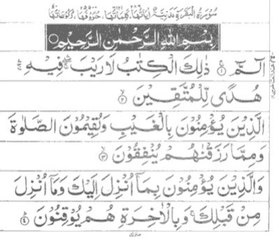 بِسْمِ اللّٰهِ الرَّحْمٰنِ الرَّحِيْمِ
الٓمّٓ ذٰلِكَ الْكِتٰبُ لَا رَيْبَ فِيْهِ
هُدًى لِّلْمُتَّقِيْنَ
الَّذِيْنَ يُؤْمِنُوْنَ بِالْغَيْبِ وَيُقِيْمُوْنَ الصَّلٰوةَ
وَمِمَّا رَزَقْنٰهُمْ يُنْفِقُوْنَ
وَالَّذِيْنَ يُؤْمِنُوْنَ بِمَآ اُنْزِلَ اِلَيْكَ وَمَآ اُنْزِلَ
مِنْ قَبْلِكَ وَبِالْاٰخِرَةِ هُمْ يُوْقِنُوْنَ